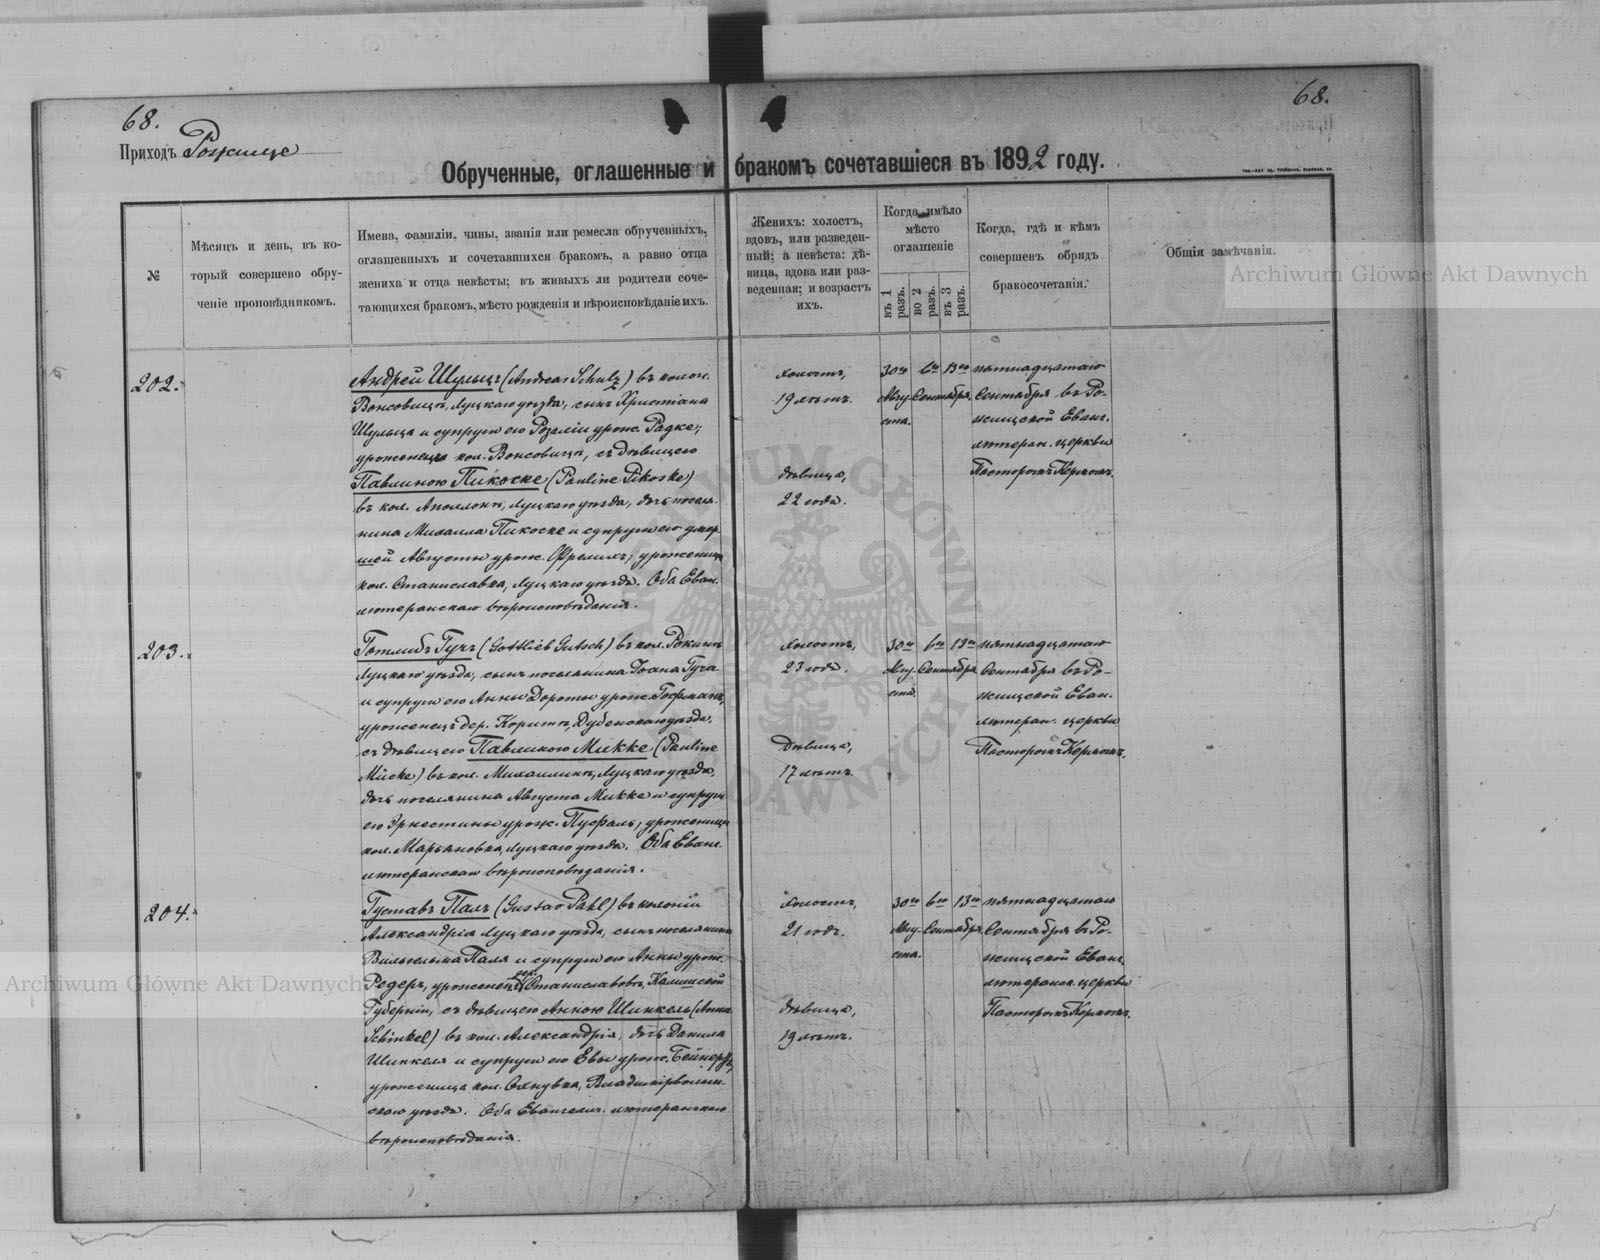 68.
68.
Приходъ Рожище
Обрученные, оглашенные и бракомъ сочетавшіеся въ 1892 году.
№
Мѣсяцъ и день, въ ко-
торый совершено обру-
ченіе проповѣдникомъ.
Имена, фамиліи, чины, званія или ремесла обрученныхъ,
оглашенныхъ и сочетавшихся бракомъ, а равно отца
жениха и отца невѣсты; въ живыхъ ли родители соче-
тающихся бракомъ, мѣсто рожденія и вѣроисповѣданіе ихъ.
Женихъ: холостъ,
вдовъ, или разведен-
ный; а невѣста: дѣ-
вица, вдова или раз-
веденная; и возрастъ
ихъ.
Когда имѣло
мѣсто
оглашеніе
въ 1 разъ.
во 2 разъ.
въ 3 разъ.
Когда, гдѣ и кѣмъ
совершенъ обрядъ
бракосочетанія.
Общія замѣчанія.
Archiwum Główne Akt Dawnych
202.
Андрей Шульцъ (Andreas Schulz) въ колон.
Вонсовичъ, Луцкаго уѣзда, сынъ Христіана
Шульца и супруги его Розаліи урож. Радке,
уроженецъ кол. Вонсовичъ, съ дѣвицею
Павлиною Пикоске (Pauline Pikoske)
въ кол. Аполлонъ, Луцкаго уѣзда, дочь поселя-
нина Михаила Пикоске и супруги его умер-
шей Августы урож. Фрелихъ; уроженица
кол. Станиславка, Луцкаго уѣзда. Оба Еван.
лютеранскаго вѣроисповѣданія.
холостъ,
19 лѣтъ.
дѣвица,
22 года.
30го 6го 13го
Авгу- Сентября
ста.
пятнадцатаго
Сентября въ Ро-
жищской Еванг.
лютеран. церкви
Пасторомъ Кермомъ.
203.
Готлибъ Гучъ (Gottlieb Gutsch) въ кол. Рокини
Луцкаго уѣзда, сынъ поселянина Іоана Гуча
и супруги его Анны Доротеи урож. Гофманъ,
уроженецъ дер. Коритъ, Дубенскаго уѣзда,
съ дѣвицею Павлиною Микке (Pauline
Mücke) въ кол. Михаилинъ, Луцкаго уѣзда,
дочь поселянина Августа Микке и супруги
его Эрнестины урож. Пуфаль, уроженица
кол. Марьяновка, Луцкаго уѣзда. Оба Еванг.
лютеранскаго вѣроисповѣданія.
холостъ,
23 года.
Дѣвица,
17 лѣтъ.
30го 6го 13го
Авгу- Сентября
ста.
пятнадцатаго
Сентября въ Ро-
жищской Еван.
лютеран. церкви
Пасторомъ Кермомъ.
204.
Густавъ Палъ (Gustav Pahl) въ колоніи
Александрія Луцкаго уѣзда, сынъ поселянина
Вильгельма Паля и супруги его Анны урож.
Редеръ, уроженецъ дер. Станиславовъ, Калишской
Губерніи, съ дѣвицею Анною Шинкель (Anna
Schinkel) въ кол. Александрія, дочь Данила
Шинкеля и супруги его Евы урож. Бейнертъ,
уроженица кол. Владимірволын-
скаго уѣзда. Оба Евангелич. лютеранскаго
вѣроисповѣданія.
холостъ,
21 годъ.
дѣвица,
19 лѣтъ.
30го 6го 13го
Авгу- Сентября
ста.
пятнадцатаго
Сентября въ Ро-
жищской Еванг.
лютеранск. церкви
Пасторомъ Кермомъ.
Archiwum Główne Akt Dawnych
ARCHIWUM GŁÓWNE AKT DAWNYCH